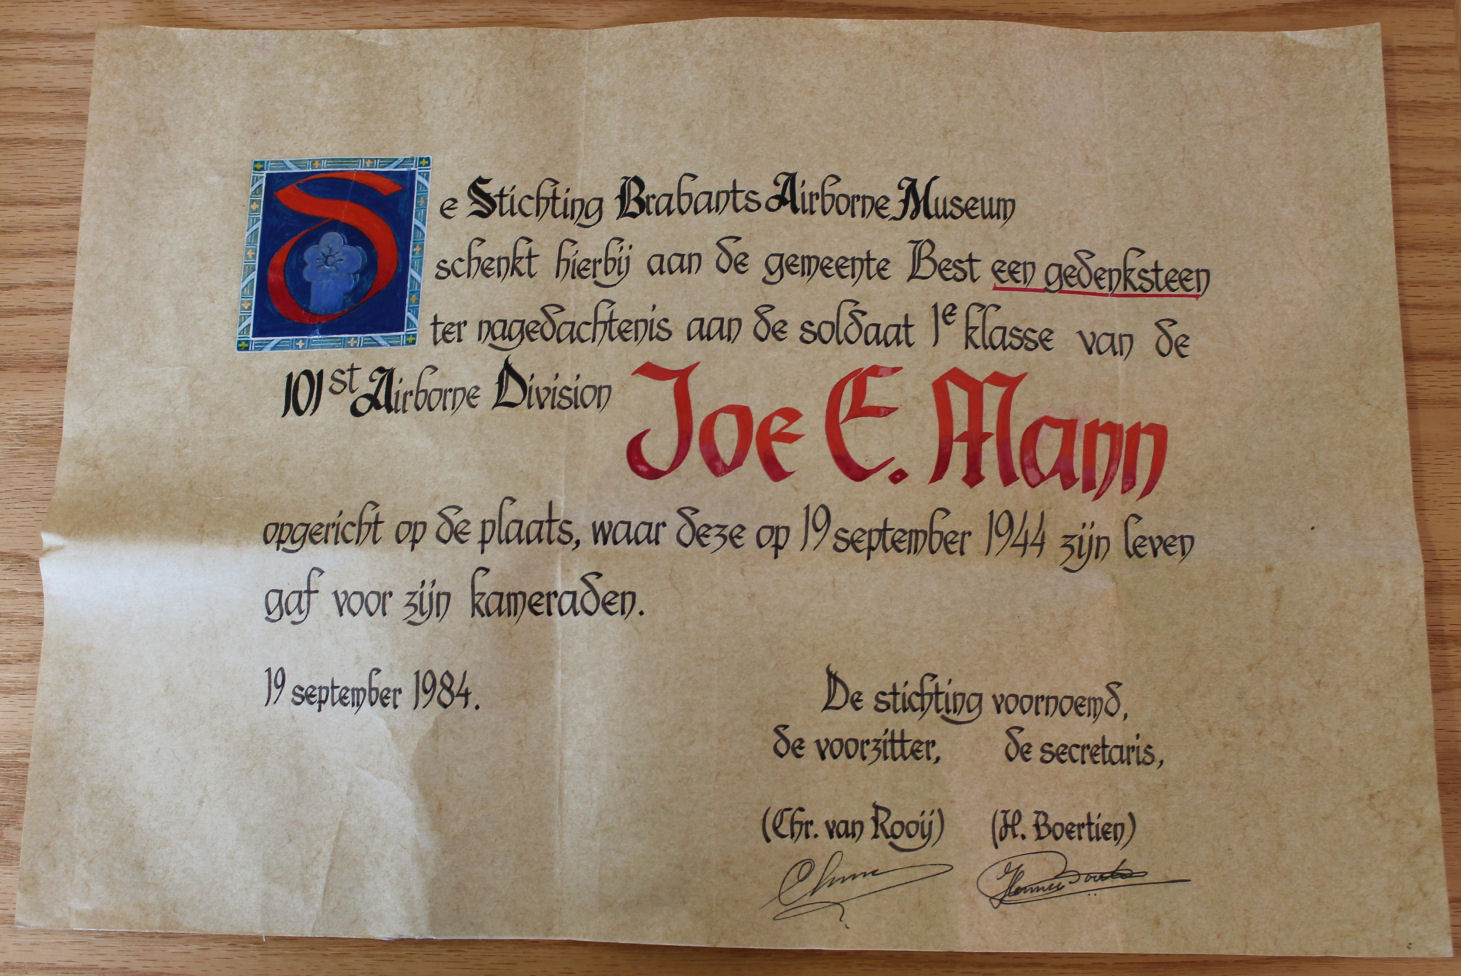 De Stichting Brabants Airborne Museum
schenkt hierbij aan de gemeente Best een gedenksteen
ter nagedachtenis aan de soldaat 1e klasse van de
101st Airborne Division Joe E. Mann
opgericht op de plaats, waar deze op 19 september 1944 zijn leven
gaf voor zijn kameraden.
19 september 1984.
De stichting voornoemd,
de voorzitter, de secretaris,
(Chr. van Rooij) (H. Boertien)